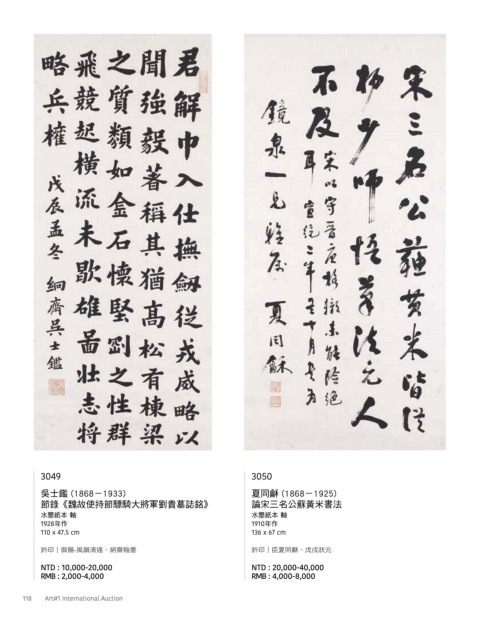 君解巾入仕撫劔從戎威略以
聞強毅著稱其猶髙松有棟梁
之質類如金石懷堅劉之性群
飛競起橫流未歇雄啚壯志將
略兵權 戊辰孟冬 絅齋吳士鑑
宋三名公蘇黃米皆從
楊少師悟筆法元人
不及
耳 宣統二年
鏡泉一兄雅屬 夏同龢
3049
吳士鑑（1868－1933）
節錄《魏故使持節驃騎大將軍劉貴墓誌銘》
水墨紙本 軸
1928年作
110 x 47.5 cm
鈐印｜御賜-風韻清遠、絅齋翰墨
NTD : 10,000-20,000
RMB : 2,000-4,000
3050
夏同龢（1868－1925）
論宋三名公蘇黃米書法
水墨紙本 軸
1910年作
136 x 67 cm
鈐印｜臣夏同龢、戊戌狀元
NTD : 20,000-40,000
RMB : 4,000-8,000
118 Art#1 International Auction